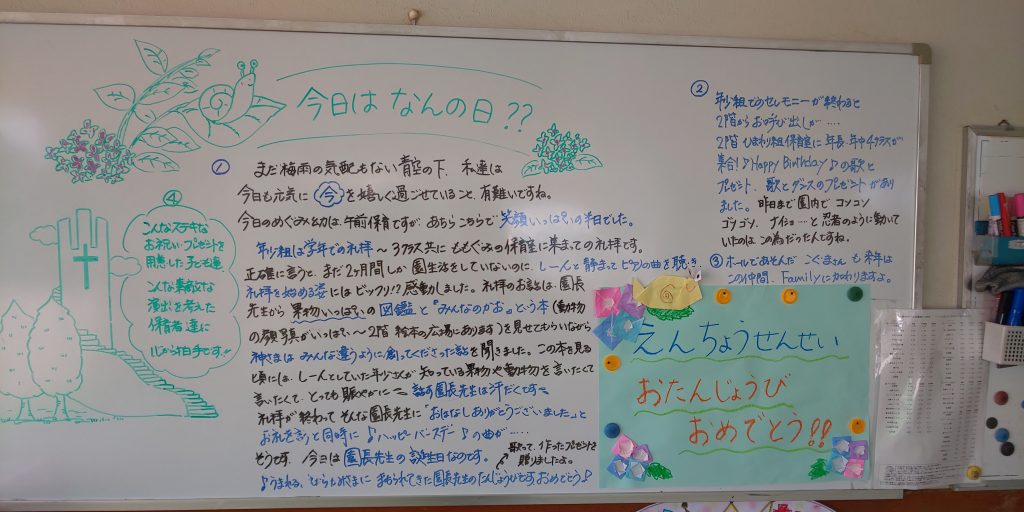 今日は なんの日??
①
まだ梅雨の気配もない青空の下、私達は
今日も元気に 今 を嬉しく過ごせていること、有難いですね。
今日のめぐみ幼は、午前保育ですが、あちらこちらで 笑顔いっぱいの半日でした。
年少組は学年での礼拝〜3クラス共に ももぐみの保育室に集まっての礼拝です。
正確に言うと、まだ2ヶ月間しか園生活をしていないのに、しーんと静まってピアノの曲を聴き、
礼拝を始める姿にはビックリ!?感動しました。礼拝のお話は、園長
先生から 果物いっぱいの図鑑と "みんなのかお" という本(動物
の顔写真がいっぱい〜2階 絵本の広場にあります)を見せてもらいながら
神さまは みんな違うように創ってくださった話を聞きました。この本を見る
頃には、しーんとしていた年少さんが 知っている果物や動物を言いたくて
言いたくて、とっても賑やかに 話す園長先生は汗だくです
礼拝が終わって そんな園長先生に "おはなしありがとうございました"と
お礼を言うと同時に ♪ハッピーバースデー♪の曲が‥‥
そうです、今日は園長先生の誕生日なのです。
歌って、作ったプレゼントを
贈りましたよ。
まもられてきた園長先生の たんじょうびです おめでとう♪
②
年少組でのセレモニーが終わると
2階からお呼び出しが ‥‥
2階 ひまわり組保育室に 年長 年中4クラスが
集合!♪Happy Birthday♪の歌と
プレゼント、歌とダンスのプレゼントがあり
ました。昨日まで園内で コソコソ
ゴソゴソ、 …と 忍者のように動いて
いたのは この為だったんですね。
③ホールであそんだ こぐまさん も 来年は
この仲間、Familyに加わりますよ。
④
こんなステキな
お祝い・プレゼントを
用意した子ども達
こんな素敵な
演出を考えた
保育者達に
心から拍手です!!
えんちょうせんせい
おたんじょうび
おめでとう!!